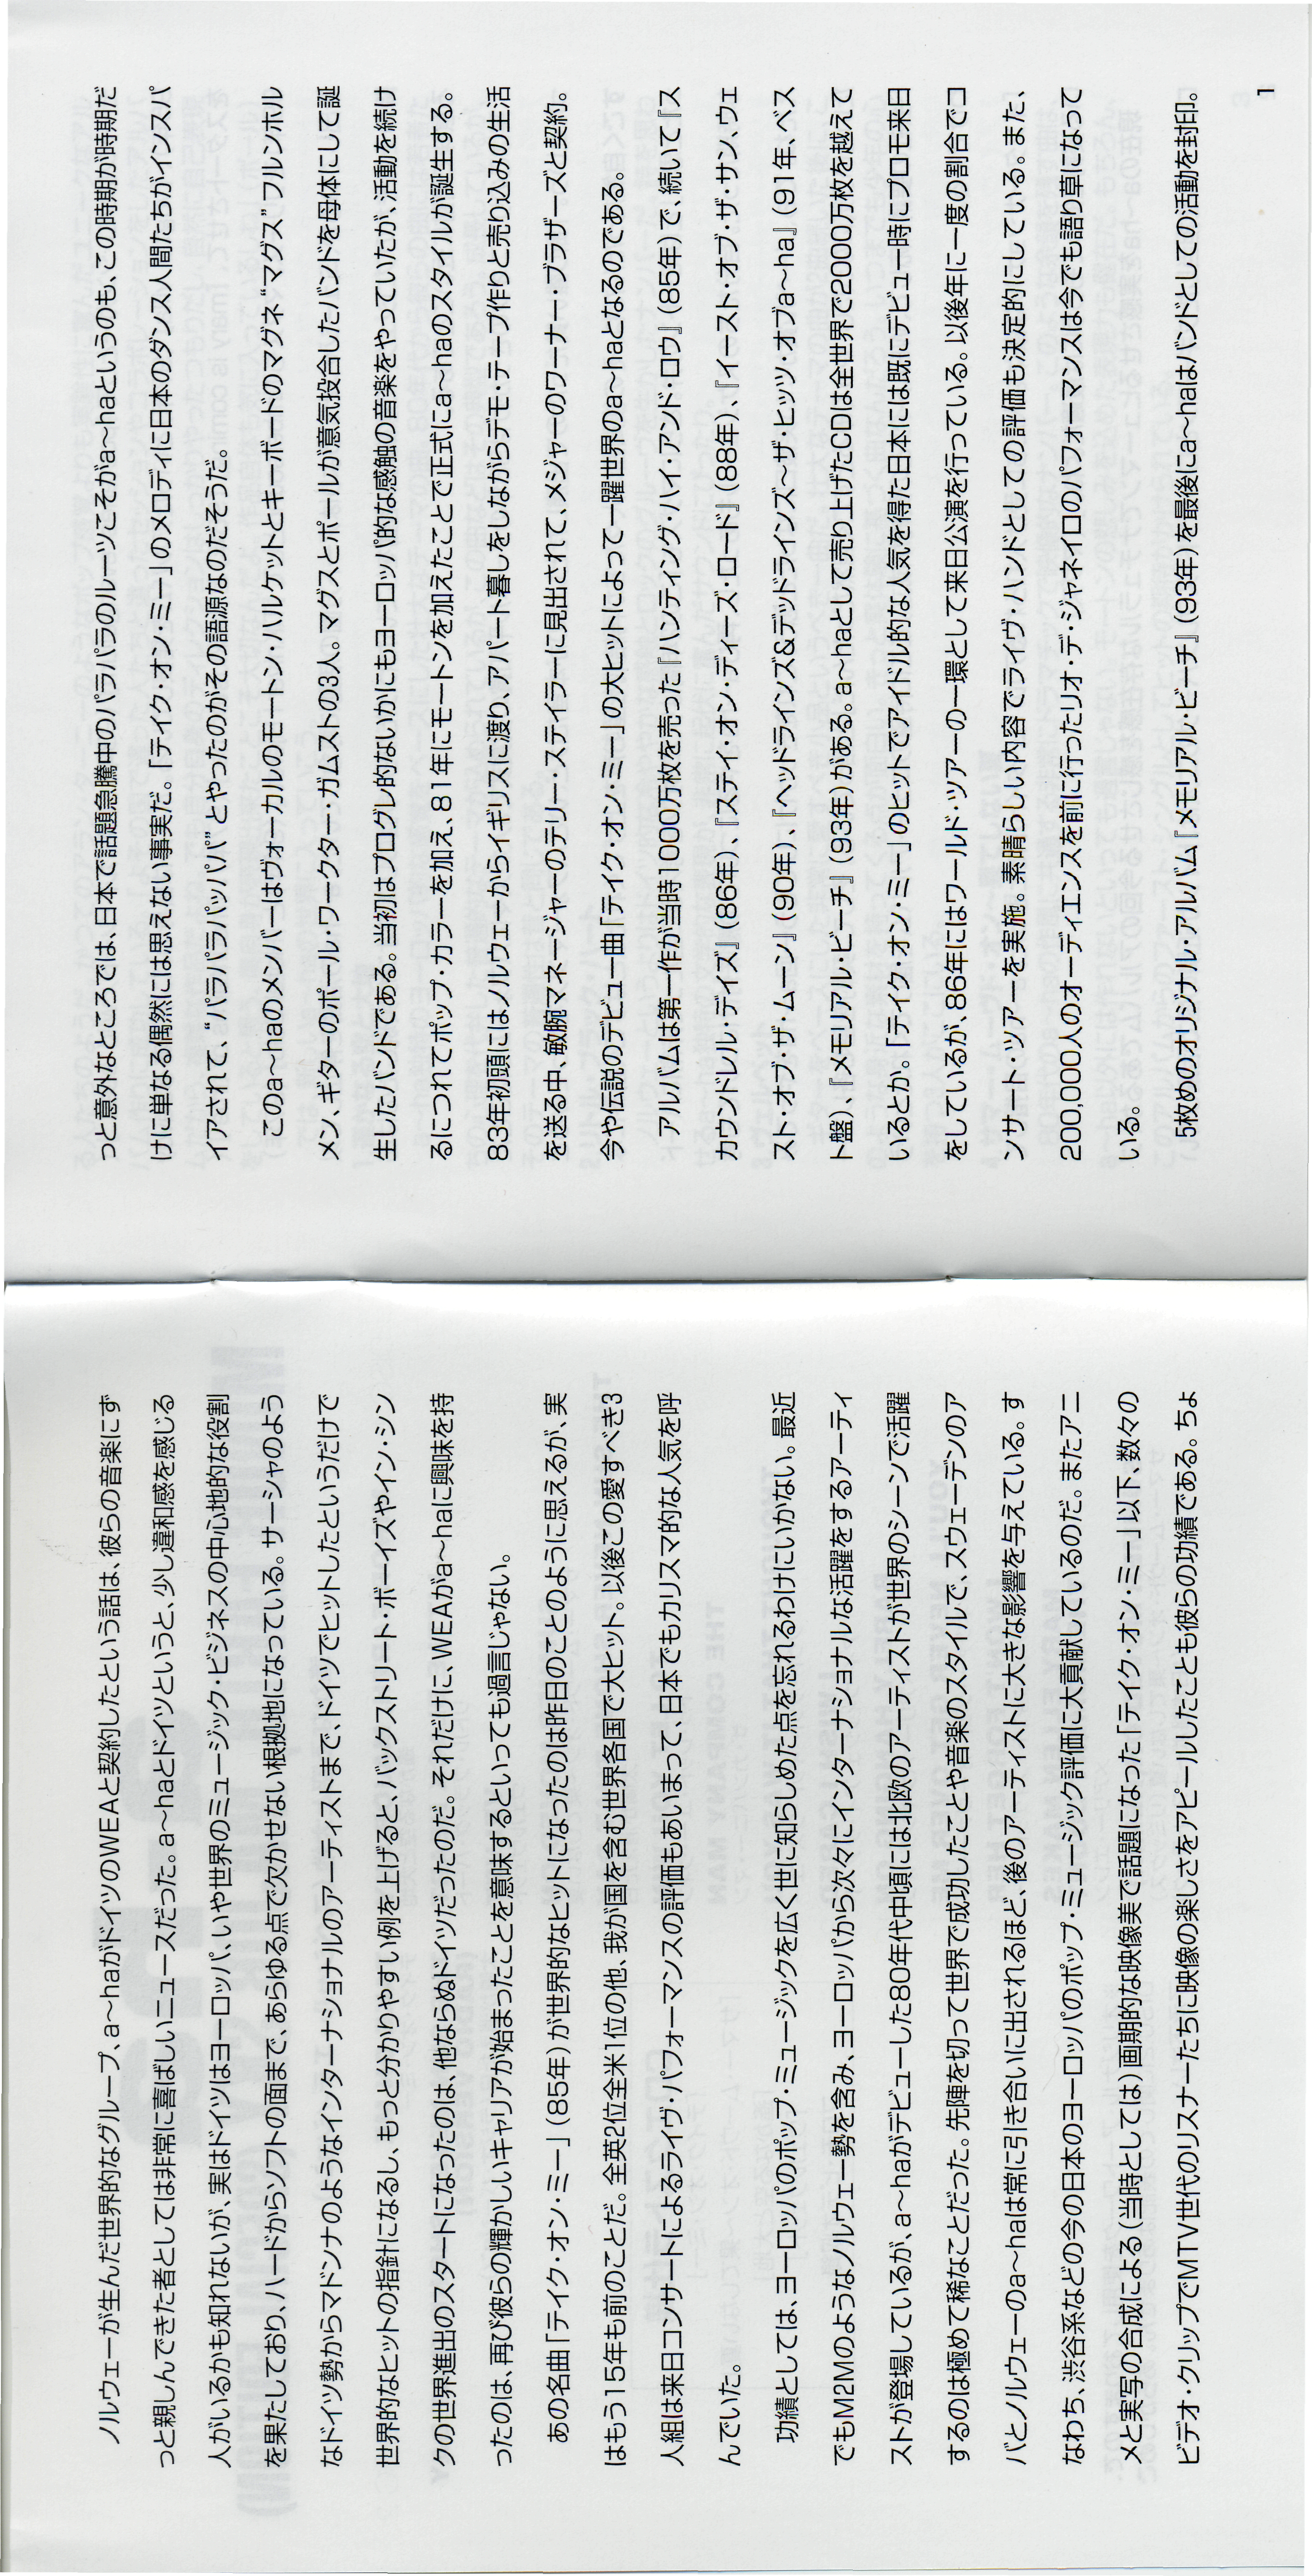 ノルウェーが生んだ世界的なグループ、a〜haがドイツのWEAと契約したという話は、彼らの音楽にず
っと親しんできた者としては非常に喜ばしいニュースだった。a〜haとドイツというと、少し違和感を感じる
人がいるかも知れないが、実はドイツはヨーロッパ、いや世界のミュージック・ビジネスの中心地的な役割
を果たしており、ハードからソフトの面まで、あらゆる点で欠かせない根拠地になっている。サーシャのよう
なドイツ勢からマドンナのようなインターナショナルのアーティストまで、ドイツでヒットしたというだけで
世界的なヒットの指針になるし、もっと分かりやすい例を上げると、バックストリート・ボーイズやイン・シン
クの世界進出のスタートになったのは、他ならぬドイツだったのだ。それだけに、WEAがa〜haに興味を持
ったのは、再び彼らの輝かしいキャリアが始まったことを意味するといっても過言じゃない。
あの名曲「テイク・オン・ミー」（85年）が世界的なヒットになったのは昨日のことのように思えるが、実
はもう15年も前のことだ。全英2位全米1位の他、我が国を含む世界各国で大ヒット。以後この愛すべき3
人組は来日コンサートによるライヴ・パフォーマンスの評価もあいまって、日本でもカリスマ的な人気を呼
んでいた。
功績としては、ヨーロッパのポップ・ミュージックを広く世に知らしめた点を忘れるわけにいかない。最近
でもM2Mのようなノルウェー勢を含み、ヨーロッパから次々にインターナショナルな活躍をするアーティ
ストが登場しているが、a〜haがデビューした80年代中頃には北欧のアーティストが世界のシーンで活躍
するのは極めて稀なことだった。先陣を切って世界で成功したことや音楽のスタイルで、スウェーデンのア
バとノルウェーのa〜haは常に引き合いに出されるほど、後のアーティストに大きな影響を与えている。す
なわち、渋谷系などの今の日本のヨーロッパのポップ・ミュージック評価に大貢献しているのだ。またアニ
メと実写の合成による（当時としては）画期的な映像美で話題になった「テイク・オン・ミー」以下、数々の
ビデオ・クリップでMTV世代のリスナーたちに映像の楽しさをアピールしたことも彼らの功績である。ちょ
っと意外なところでは、日本で話題急騰中のパラパラのルーツこそがa〜haというのも、この時期が時期だ
けに単なる偶然には思えない事実だ。「テイク・オン・ミー」のメロディに日本のダンス人間たちがインスパ
イアされて、“パラパラパッパパ”とやったのがその語源なのだそうだ。
このa〜haのメンバーはヴォーカルのモートン・ハルケットとキーボードのマグネ“マグス”フルンホル
メン、ギターのポール・ワークター・ガムストの3人。マグスとポールが意気投合したバンドを母体にして誕
生したバンドである。当初はプログレ的ないかにもヨーロッパ的な感触の音楽をやっていたが、活動を続け
るにつれてポップ・カラーを加え、81年にモートンを加えたことで正式にa〜haのスタイルが誕生する。
83年初頭にはノルウェーからイギリスに渡り、アパート暮しをしながらデモ・テープ作りと売り込みの生活
を送る中、敏腕マネージャーのテリー・ステイラーに見出されて、メジャーのワーナー・ブラザーズと契約。
今や伝説のデビュー曲「テイク・オン・ミー」の大ヒットによって一躍世界のa〜haとなるのである。
アルバムは第一作が当時1000万枚を売った『ハンティング・ハイ・アンド・ロウ』（85年）で、続いて『ス
カウンドレル・デイズ』（86年）、『ステイ・オン・ディーズ・ロード』（88年）、『イースト・オブ・ザ・サン、ウェ
スト・オブ・ザ・ムーン』（90年）、『ヘッドラインズ&デッドラインズ〜ザ・ヒッツ・オブa〜ha』（91年、ベス
ト盤）、『メモリアル・ビーチ』（93年）がある。a〜haとして売り上げたCDは全世界で2000万枚を越えて
いるとか。「テイク・オン・ミー」のヒットでアイドル的な人気を得た日本には既にデビュー時にプロモ来日
をしているが、86年にはワールド・ツアーの一環として来日公演を行っている。以後年に一度の割合でコ
ンサート・ツアーを実施。素晴らしい内容でライヴ・ハンドとしての評価も決定的にしている。また、
200,000人のオーディエンスを前に行ったリオ・デ・ジャネイロのパフォーマンスは今でも語り草になって
いる。
5枚めのオリジナル・アルバム『メモリアル・ビーチ』（93年）を最後にa〜haはバンドとしての活動を封印。
1